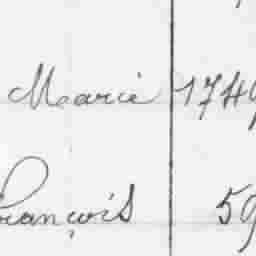 Marie 1749
François 59